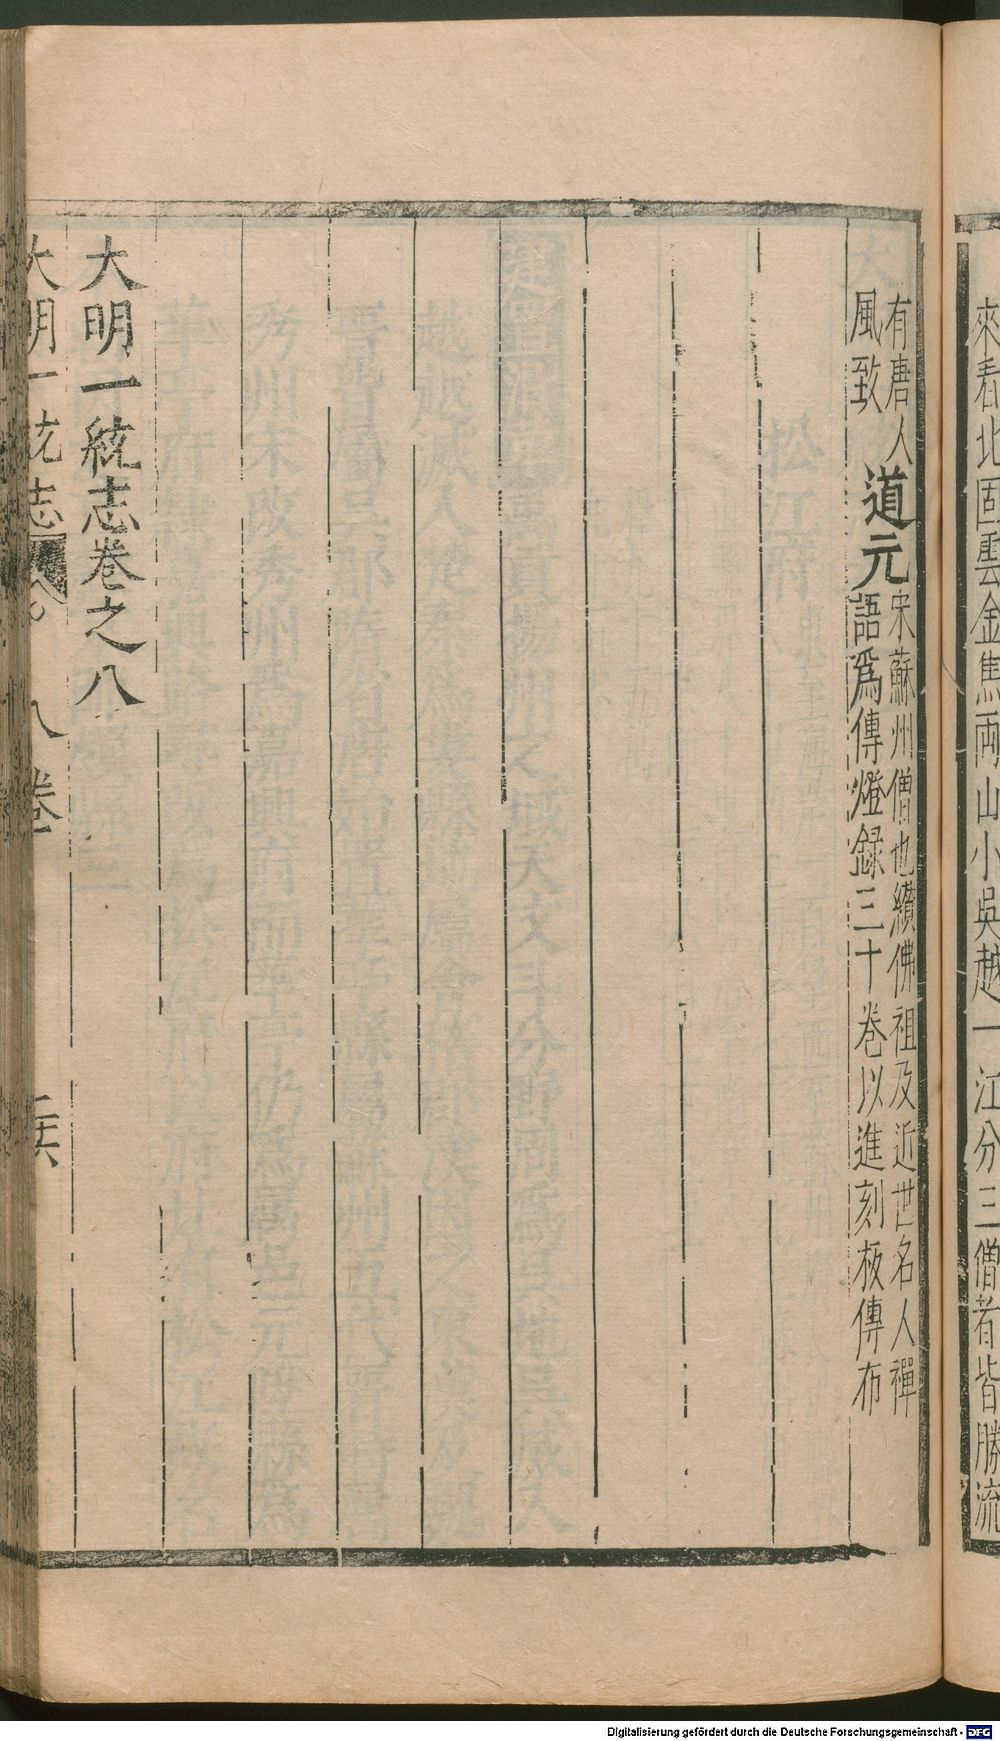 來看北固雲金焦兩山小吳越一江分三僧者皆勝流
有唐人
風致
道元
宋蘇州僧也纘佛祖及近世名人禪
語爲傳燈録三十卷以進刻板傳布
大明一統志卷之八
大明一統志
八卷
Digitalisierung gefördert durch die Deutsche Forschungsgemeinschaft - DFG